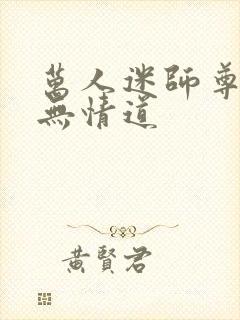 萬人迷師尊
無情道
黃賢君